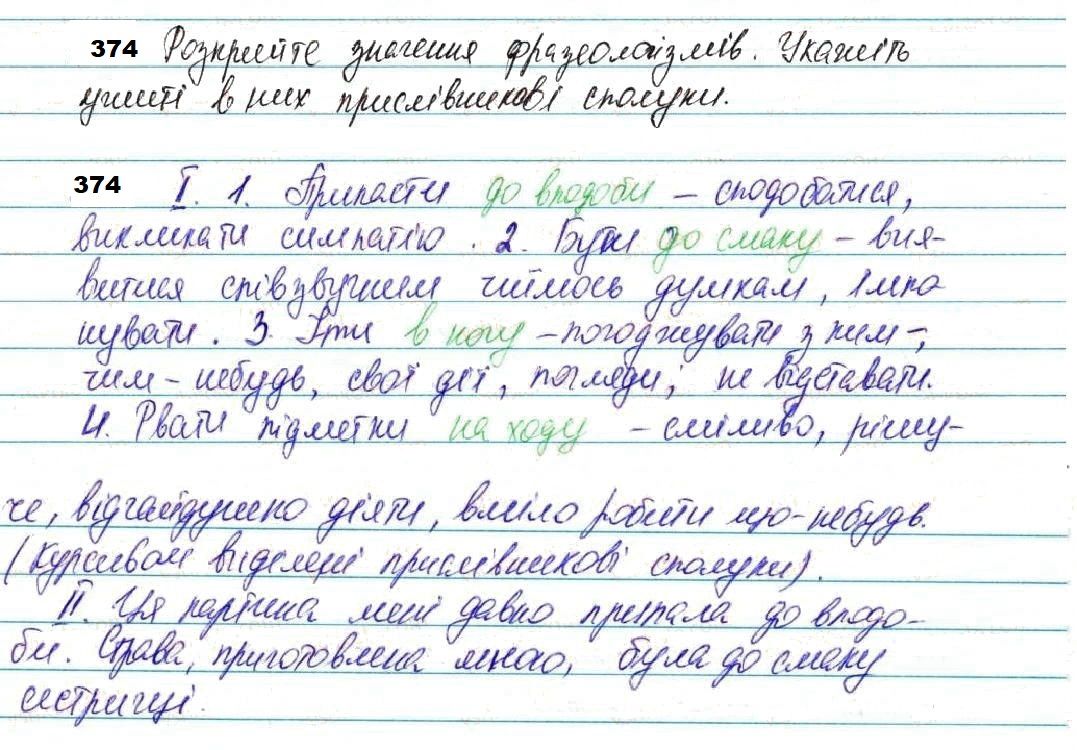 374 Розкрийте значення фразеологізмів. Укажіть
ужиті в них прислівникові сполуки.
374 I. 1. Припасти до вподоби – сподобатися,
викликати симпатію. 2. Бути до смаку – вия-
витися співзвучним чиїмось думкам, імпо
нувати. 3. Іти в ногу – погоджувати з ким-,
чим-небудь, свої дії, погляди; не відставати.
4. Рвати підметки на ходу – сміливо, рішу-
че, відчайдушно діяти, вміло робити що-небудь.
(Курсивом виділені прислівникові сполуки).
II. Ця картина мені давно припала до вподо-
би. Страва, приготовлена мною, була до смаку
сестричці.